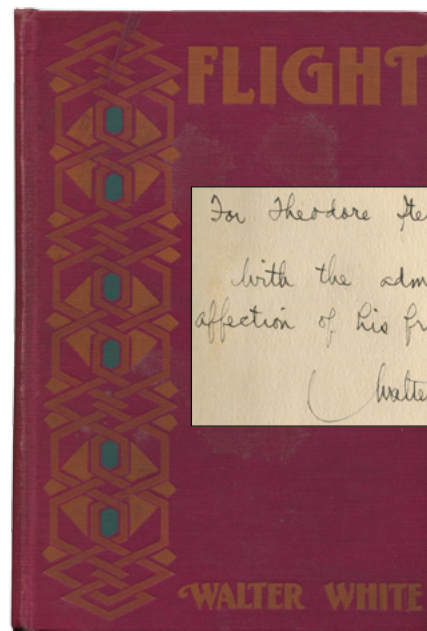 FLIGHT
For Theodore Ste
With the adm
affection of his fr
Walte
WALTER WHITE